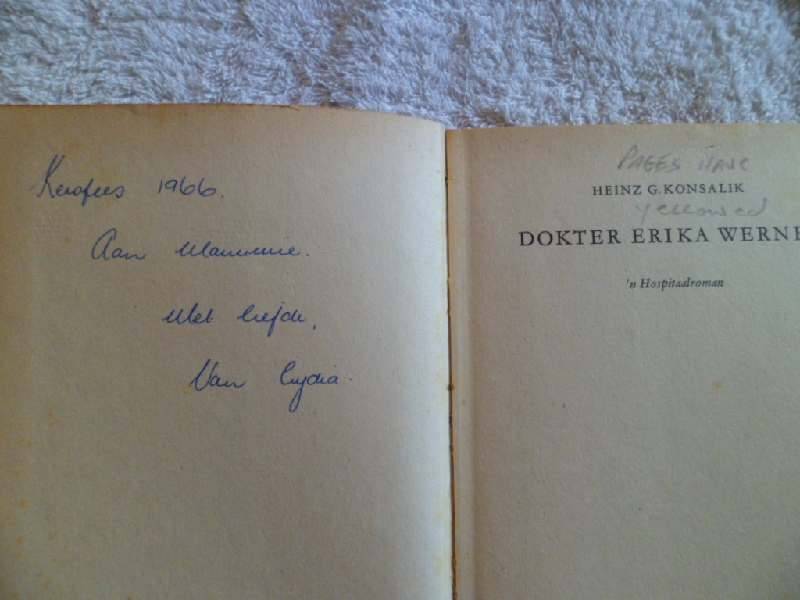 Kersfees 1966.
Aan Mammie.
Met liefde,
Van Lydia.
PAGES HAVE
HEINZ G. KONSALIK
yellowed
DOKTER ERIKA WERNE
'n Hospitaalroman